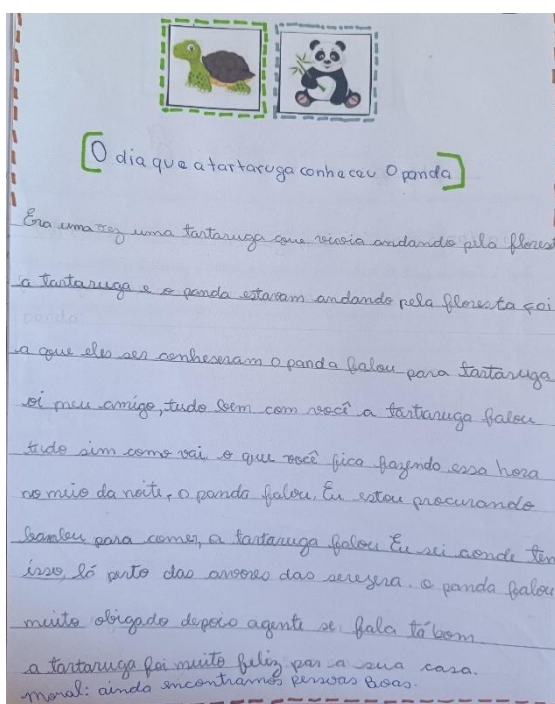 O dia que a tartaruga conheceu O panda
Era uma vez uma tartaruga que vivia andando pela florest
a tartaruga e o panda estavam andando pela floresta foi
panda
a que eles ser conheseram o panda falou para tartaruga
oi meu amigo, tudo bem com você a tartaruga falou
tudo sim como vai o que você fica fazendo essa hora
no meio da noite, o panda falou, Eu estou procurando
bambu para comer, a tartaruga falou Eu sei aonde tem
isso, lá perto das arvores das seresera. o panda falou
muito obigado depois agente se fala tá bom
a tartaruga foi muito feliz par a sua casa.
Moral: ainda encontramos pessoas boas.